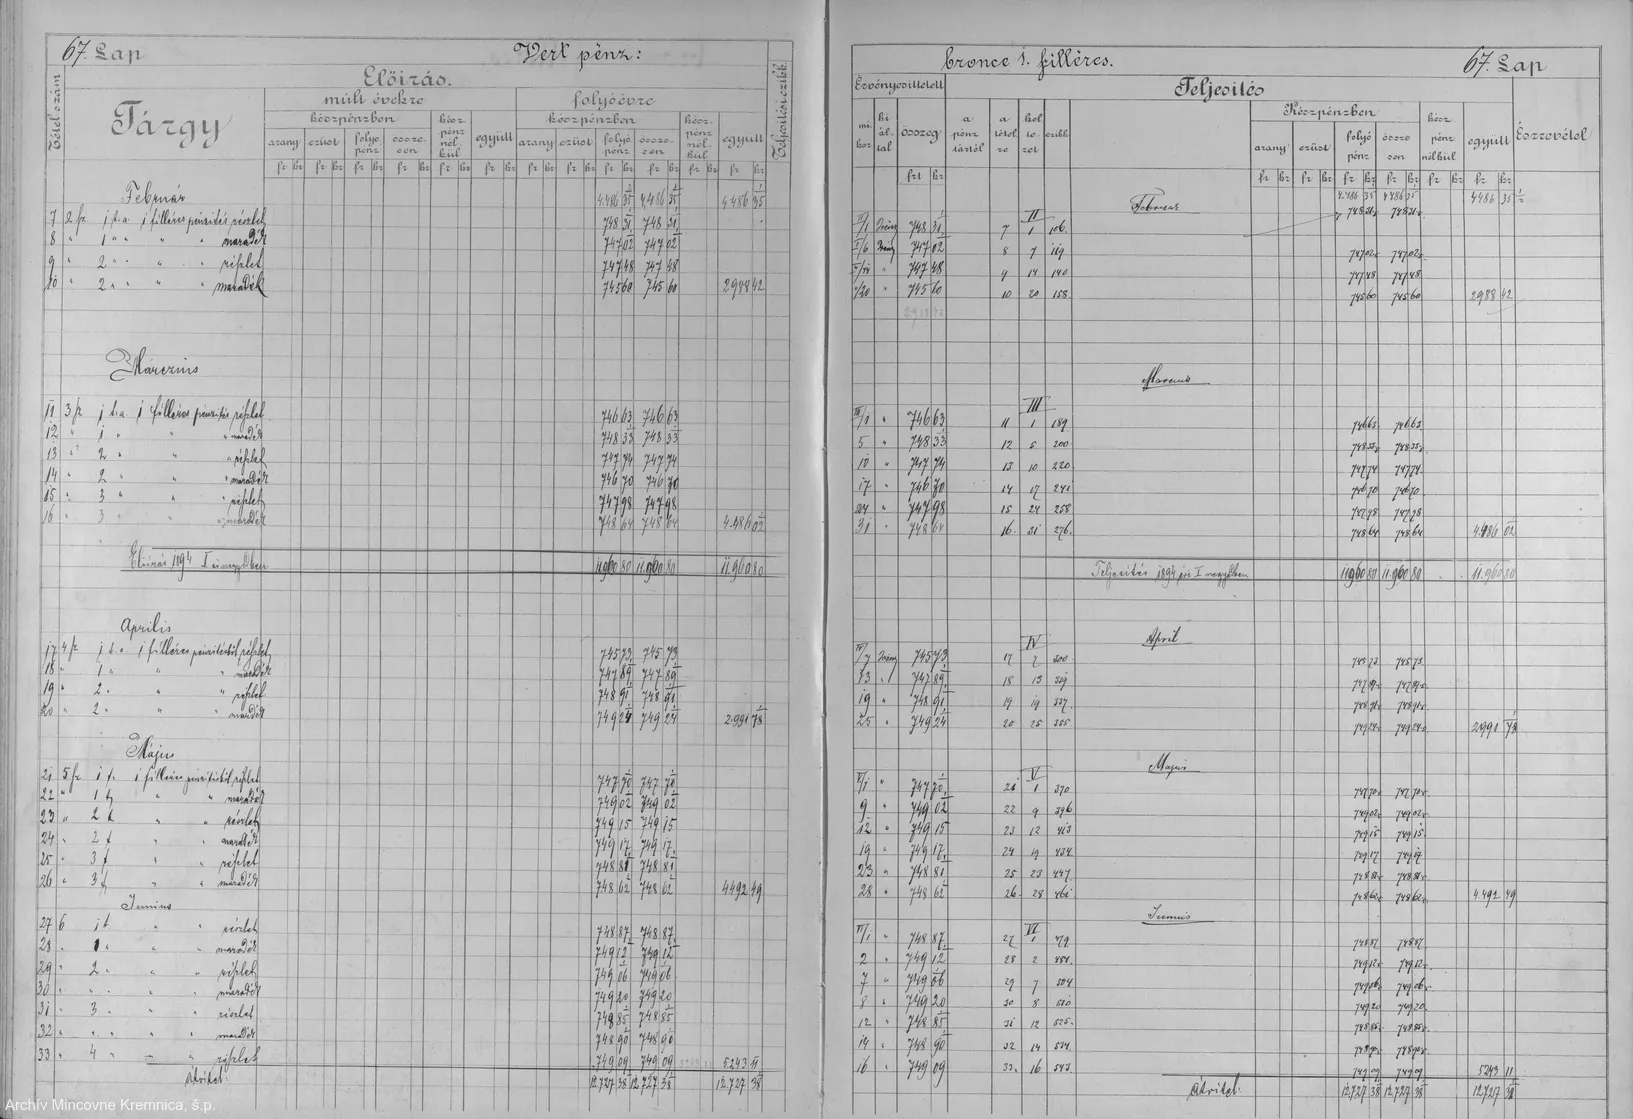 67. Lap
Vert pénz:
Előirás.
Tételszám
Tárgy
múlt évekre
folyóévre
készpénzben
kész pénz nélkül
együtt
készpénzben
kész pénz nélkül
együtt
arany ezüst folyó pénz össze-sen
arany ezüst folyó pénz össze-sen
fr kr
Február
4.486 35 4.486 35 4486 35
7 2 fr 1 t.a 1 filléres pénzítés részlet 748 31 748 31
8 " 1 " " " " maradék 747 02 747 02
9 " 2 " " " részlet 747 48 747 48
10 " 2 " " " maradék 745 60 745 60 2988 42
Márczius
11 3 fr 1 t.a 1 filléres pénzítés részlet 746 63 746 63
12 " 1 " " " maradék 748 33 748 33
13 " 2 " " " részlet 747 74 747 74
14 " 2 " " " maradék 746 70 746 70
15 " 3 " " " részlet 747 98 747 98
16 " 3 " " " maradék 748 64 748 64 4.486 02
Előirás 1894 I évnegyedben 11.960 80 11.960 80 11.960 80
Aprilis
17 4 fr 1 t.a 1 filléres pénzítésből részlet 745 73 745 73
18 " 1 " " " maradék 747 89 747 89
19 " 2 " " " részlet 748 91 748 91
20 " 2 " " " maradék 749 24 749 24 2.991 78
Május
21 5 fr 1 t. 1 filléres pénzítésből részlet 747 70 747 70
22 " 1 t " " maradék 749 02 749 02
23 " 2 t " " részlet 749 15 749 15
24 " 2 t " " maradék 749 17 749 17
25 " 3 t " " részlet 748 81 748 81
26 " 3 t " " maradék 748 62 748 62 4492 49
Junius
27 6 1 t " " részlet 748 87 748 87
28 " 1 " " " maradék 749 12 749 12
29 " 2 " " " részlet 749 06 749 06
30 " " " " maradék 749 20 749 20
31 " 3 " " részlet 748 85 748 85
32 " " " " maradék 748 90 748 90
33 " 4 " " részlet 749 09 749 09 5243 11
Átvitel: 12.727 38 12.727 38 12.727 38
bronce 1. filléres.
67. Lap
Érvényesíttetett
Teljesítés
mi-kor
ki ál-tal
összeg
a pénz-tártól
a tétel-re
kel-te-zet
czikk
Készpénzben
arany ezüst folyó pénz össze sen
kész pénz nélkül
együtt
Észrevétel
frt kr
Februar
4.486 35 4486 35 4486 35
II
II/1 748 31 7 1 106 748 31 748 31
747 02 8 7 747 02 747 02
" 747 48 9 14 140 747 48 747 48
" 745 60 10 20 158 745 60 745 60 2988 42
2988 42
Marcius
III
III/1 " 746 63 11 1 189 746 63 746 63
5 " 748 33 12 5 200 748 33 748 33
10 " 747 74 13 10 220 747 74 747 74
17 " 746 70 14 17 241 746 70 746 70
24 " 747 98 15 24 258 747 98 747 98
31 " 748 64 16 31 276 748 64 748 64 4.486 02
Teljesítés 1894 évi I negyedben 11.960 80 11.960 80 11.960 80
April
IV
IV/7 745 73 17 7 300 745 73 745 73
13 " 747 89 18 13 319 747 89 747 89
19 " 748 91 19 19 337 748 91 748 91
25 " 749 24 20 25 355 749 24 749 24 2991 78
Majus
V
V/1 " 747 70 21 1 370 747 70 747 70
9 " 749 02 22 9 396 749 02 749 02
12 " 749 15 23 12 413 749 15 749 15
19 " 749 17 24 19 434 749 17 749 17
23 " 748 81 25 23 447 748 81 748 81
28 " 748 62 26 28 748 62 748 62 4.492 49
Junius
VI
VI/1 " 748 87 27 1 479 748 87 748 87
2 " 749 12 28 2 749 12 749 12
7 " 749 06 29 7 504 749 06 749 06
8 " 749 20 30 8 510 749 20 749 20
12 " 748 85 31 12 525 748 85 748 85
14 " 748 90 32 14 534 748 90 748 90
16 " 749 09 33 16 543 749 09 749 09 5243 11
Átvitel: 12.727 38 12.727 38 12.727 38
Archív Mincovne Kremnica, š.p.